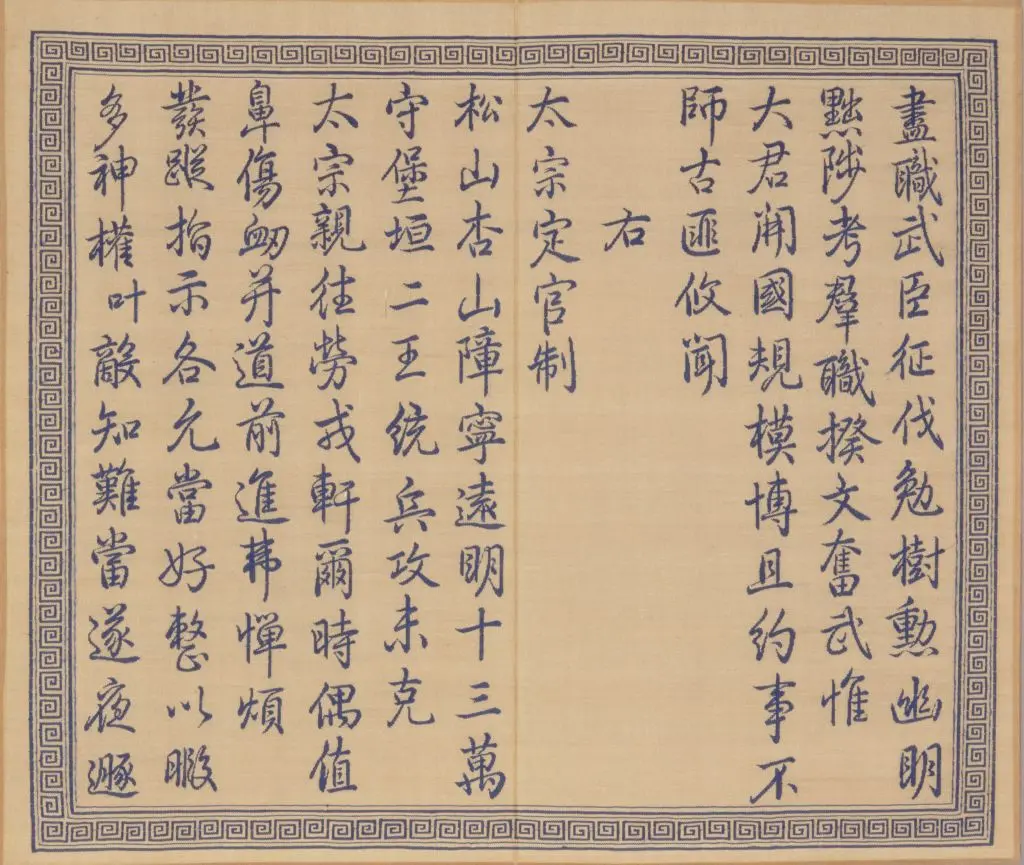 盡職武臣征伐勉樹勲幽明
黜陟考羣職揆文奮武惟
大君開國規模博且約事不
師古匪攸聞
右
太宗定官制
松山杏山障寧遠明十三萬
守堡垣二王統兵攻未克
太宗親往勞戎軒爾時偶值
鼻傷衂并道前進弗憚煩
發蹤指示各允當好整以暇
多神權叶敵知難當遂夜遯